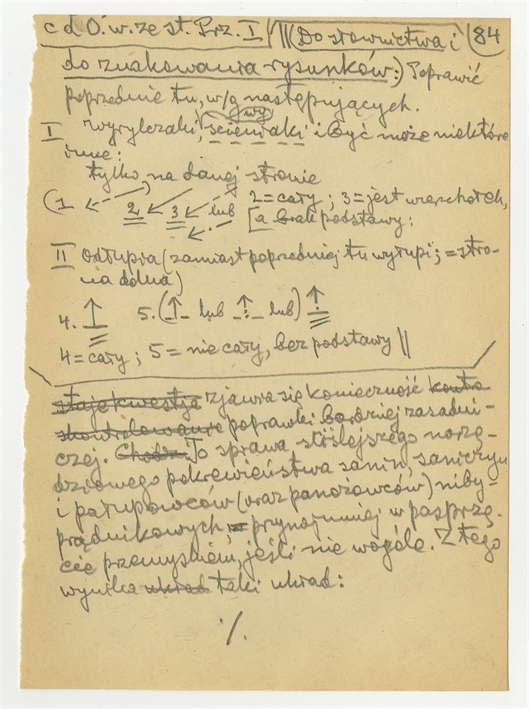 c d O. w. ze st. Prz. I / || (Do słownictwa i (84
do znakowania rysunków:) Poprawić
poprzednie tu, w/g następujących.
I wyrylczaki, i być może niektóre
inne:
tylko na danej stronie
(1 2 3 lub 2 = cały; 3 = jest wierzchołek,
[a brak podstawy:
II Odłupia (zamiast poprzedniej tu wyłupi; = stro-
na dolna)
4. ↑ 5. (↑ lub ↑ lub) ↑
4 = cały; 5 = nie cały, bez podstawy ||
staje kwestja zjawia się konieczność
poprawki bardziej zasadni-
czej. Chodzi To sprawa ściślejszego narzę-
dziowego pokrewieństwa sanin, saniczyn
i parupowców (oraz panożowców) niby-
prądnikowych, = przynajmniej w pasprzę-
cie przemyskiem, jeśli nie wogóle. Z tego
wynika układ taki układ:
./.